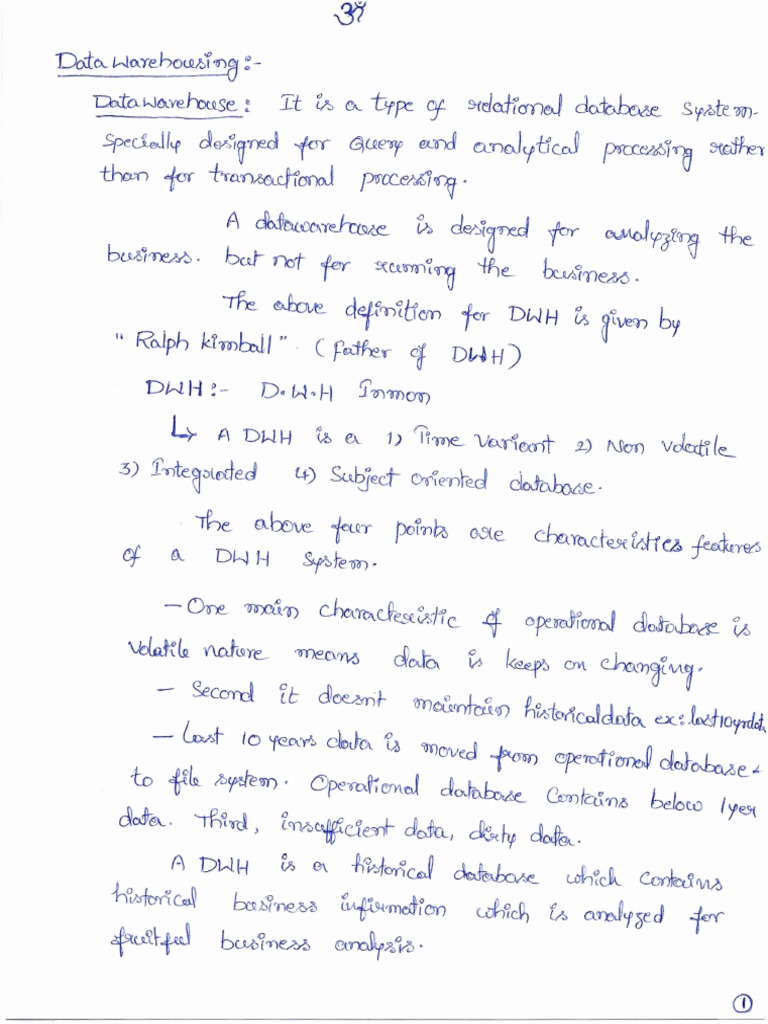 ॐ
Data warehousing :-
Datawarehouse : It is a type of relational database system
specially designed for Query and analytical processing rather
than for transactional processing.
A datawarehouse is designed for analyzing the
business. but not for running the business.
The above definition for DWH is given by
"Ralph kimball". (father of DWH)
DWH :- D.W.H Inmon
↳ A DWH is a 1) Time variant 2) Non volatile
3) Integrated 4) Subject oriented database.
The above four points are characteristics features
of a DWH system.
- One main characteristic of operational database is
volatile nature means data is keeps on changing.
- Second it doesn't maintain historical data ex: last 10 yr data
- Last 10 years data is moved from operational database
to file system. Operational database contains below 1 yer
data. Third, insufficient data, dirty data.
A DWH is a historical database which contains
historical business infirmation which is analyzed for
fruitful business analysis.
1